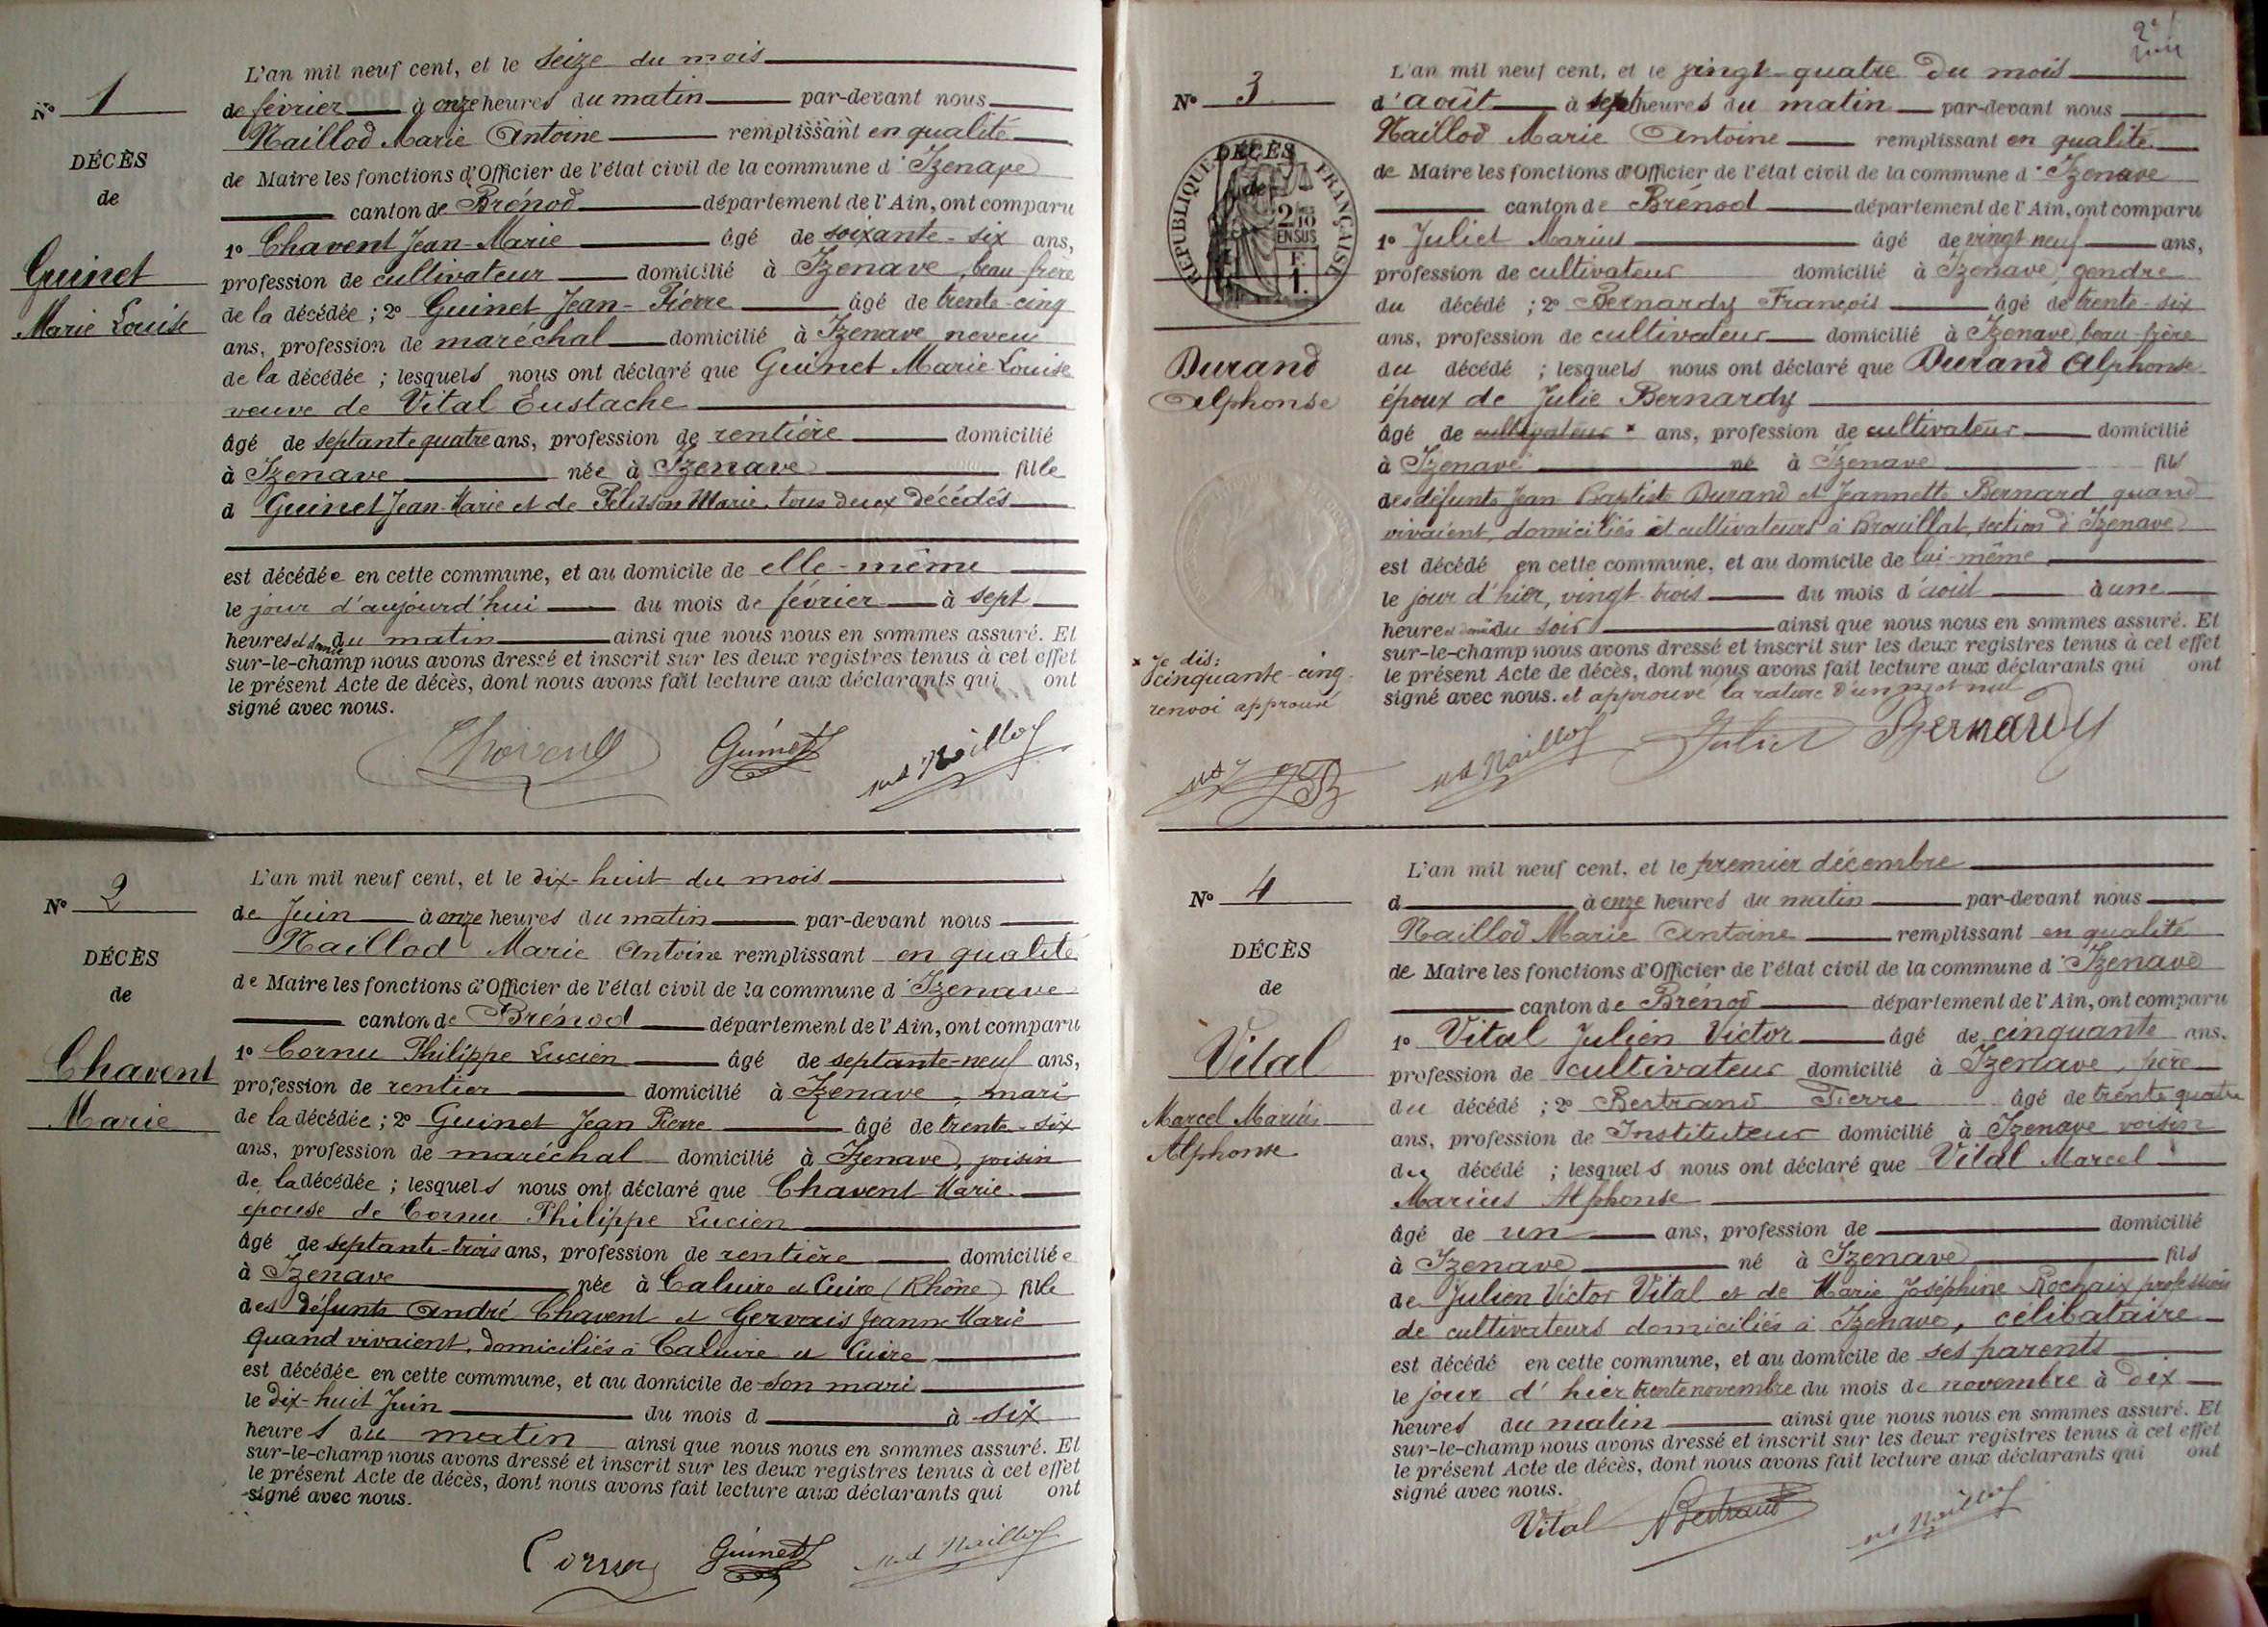 N° 1
DÉCÈS
de
Guinet
Marie Louise
L'an mil neuf cent, et le seize du mois
de février à onze heures du matin par-devant nous
Naillod Marie Antoine remplissant en qualité
de Maire les fonctions d'Officier de l'état civil de la commune d'Izenave
canton de Brénod département de l'Ain, ont comparu
1° Chavent Jean-Marie âgé de soixante-six ans,
profession de cultivateur domicilié à Izenave, beau frère
de la décédée ; 2° Guinet Jean-Pierre âgé de trente-cinq
ans, profession de maréchal domicilié à Izenave neveu
de la décédée ; lesquels nous ont déclaré que Guinet Marie Louise
veuve de Vital Eustache
âgé de septante quatre ans, profession de rentière domicilié
à Izenave née à Izenave fille
d Guinet Jean-Marie et de Pélisson Marie, tous deux décédés
est décédée en cette commune, et au domicile de elle-même
le jour d'aujourd'hui du mois de février à sept
heures et demie du matin ainsi que nous nous en sommes assuré. Et
sur-le-champ nous avons dressé et inscrit sur les deux registres tenus à cet effet
le présent Acte de décès, dont nous avons fait lecture aux déclarants qui ont
signé avec nous.
Chavent Guinet M A Naillod
N° 2
DÉCÈS
de
Chavent
Marie
L'an mil neuf cent, et le dix-huit du mois
de Juin à onze heures du matin par-devant nous
Naillod Marie Antoine remplissant en qualité
de Maire les fonctions d'Officier de l'état civil de la commune d'Izenave
canton de Brénod département de l'Ain, ont comparu
1° Cornu Philippe Lucien âgé de septante-neuf ans,
profession de rentier domicilié à Izenave, mari
de la décédée ; 2° Guinet Jean Pierre âgé de trente-six
ans, profession de maréchal domicilié à Izenave, voisin
de la décédée ; lesquels nous ont déclaré que Chavent Marie
épouse de Cornu Philippe Lucien
âgé de septante-trois ans, profession de rentière domiciliée
à Izenave née à Caluire et Cuire (Rhône) fille
des défunts André Chavent et Gervais Jeanne Marie
quand vivaient, domiciliés à Caluire et Cuire
est décédée en cette commune, et au domicile de son mari
le dix-huit Juin du mois d à six
heures du matin ainsi que nous nous en sommes assuré. Et
sur-le-champ nous avons dressé et inscrit sur les deux registres tenus à cet effet
le présent Acte de décès, dont nous avons fait lecture aux déclarants qui ont
signé avec nous.
Cornu Guinet M A Naillod
N° 3
DÉCÈS
de
RÉPUBLIQUE FRANÇAISE
2/10
EN SUS
F.
1.
Durand
Alphonse
L'an mil neuf cent, et le vingt-quatre du mois
d'août à sept heures du matin par-devant nous
Naillod Marie Antoine remplissant en qualité
de Maire les fonctions d'Officier de l'état civil de la commune d'Izenave
canton de Brénod département de l'Ain, ont comparu
1° Juliet Marius âgé de vingt neuf ans,
profession de cultivateur domicilié à Izenave, gendre
du décédé ; 2° Bernardy François âgé de trente-six
ans, profession de cultivateur domicilié à Izenave, beau-frère
du décédé ; lesquels nous ont déclaré que Durand Alphonse
époux de Julie Bernardy
âgé de cultivateur × ans, profession de cultivateur domicilié
à Izenave né à Izenave fils
des défunts Jean Baptiste Durand et Jeannette Bernard quand
vivaient, domiciliés et cultivateurs à Brouillat, section d'Izenave
est décédé en cette commune, et au domicile de lui-même
le jour d'hier, vingt-trois du mois d'août à une
heure et demie du soir ainsi que nous nous en sommes assuré. Et
sur-le-champ nous avons dressé et inscrit sur les deux registres tenus à cet effet
le présent Acte de décès, dont nous avons fait lecture aux déclarants qui ont
signé avec nous. et approuvé la rature d'un mot nul
× Je dis:
cinquante-cinq
renvoi approuvé
M A Naillod Juliet Bernardy
N° 4
DÉCÈS
de
Vital
Marcel Marius
Alphonse
L'an mil neuf cent, et le premier décembre
d à onze heures du matin par-devant nous
Naillod Marie Antoine remplissant en qualité
de Maire les fonctions d'Officier de l'état civil de la commune d'Izenave
canton de Brénod département de l'Ain, ont comparu
1° Vital Julien Victor âgé de cinquante ans.
profession de cultivateur domicilié à Izenave, père
du décédé ; 2° Bertrand Pierre âgé de trente quatre
ans, profession de Instituteur domicilié à Izenave voisin
du décédé ; lesquels nous ont déclaré que Vital Marcel
Marius Alphonse
âgé de un ans, profession de domicilié
à Izenave né à Izenave fils
de Julien Victor Vital et de Marie Joséphine Rochaix profession
de cultivateurs domiciliés à Izenave, célibataire
est décédé en cette commune, et au domicile de ses parents
le jour d'hier trente novembre du mois de novembre à dix
heures du matin ainsi que nous nous en sommes assuré. Et
sur-le-champ nous avons dressé et inscrit sur les deux registres tenus à cet effet
le présent Acte de décès, dont nous avons fait lecture aux déclarants qui ont
signé avec nous.
Vital Bertrand M A Naillod